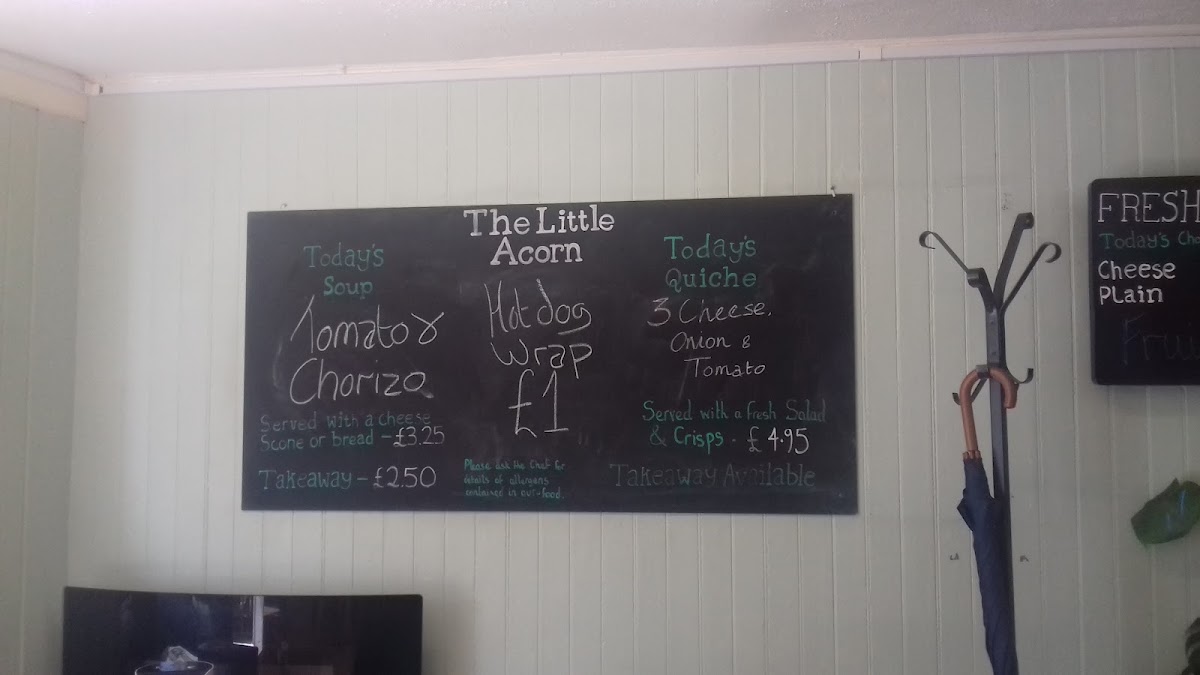 The Little
Acorn
Today's
Soup
Tomato &
Chorizo
Served with a cheese
Scone or bread - £3.25
Takeaway - £2.50
Hot dog
Wrap
£1
Please ask the Chef for
details of allergens
contained in our food.
Today's
Quiche
3 Cheese,
Onion &
Tomato
Served with a fresh Salad
& Crisps . £4.95
Takeaway Available
FRESH
Today's
Cheese
Plain